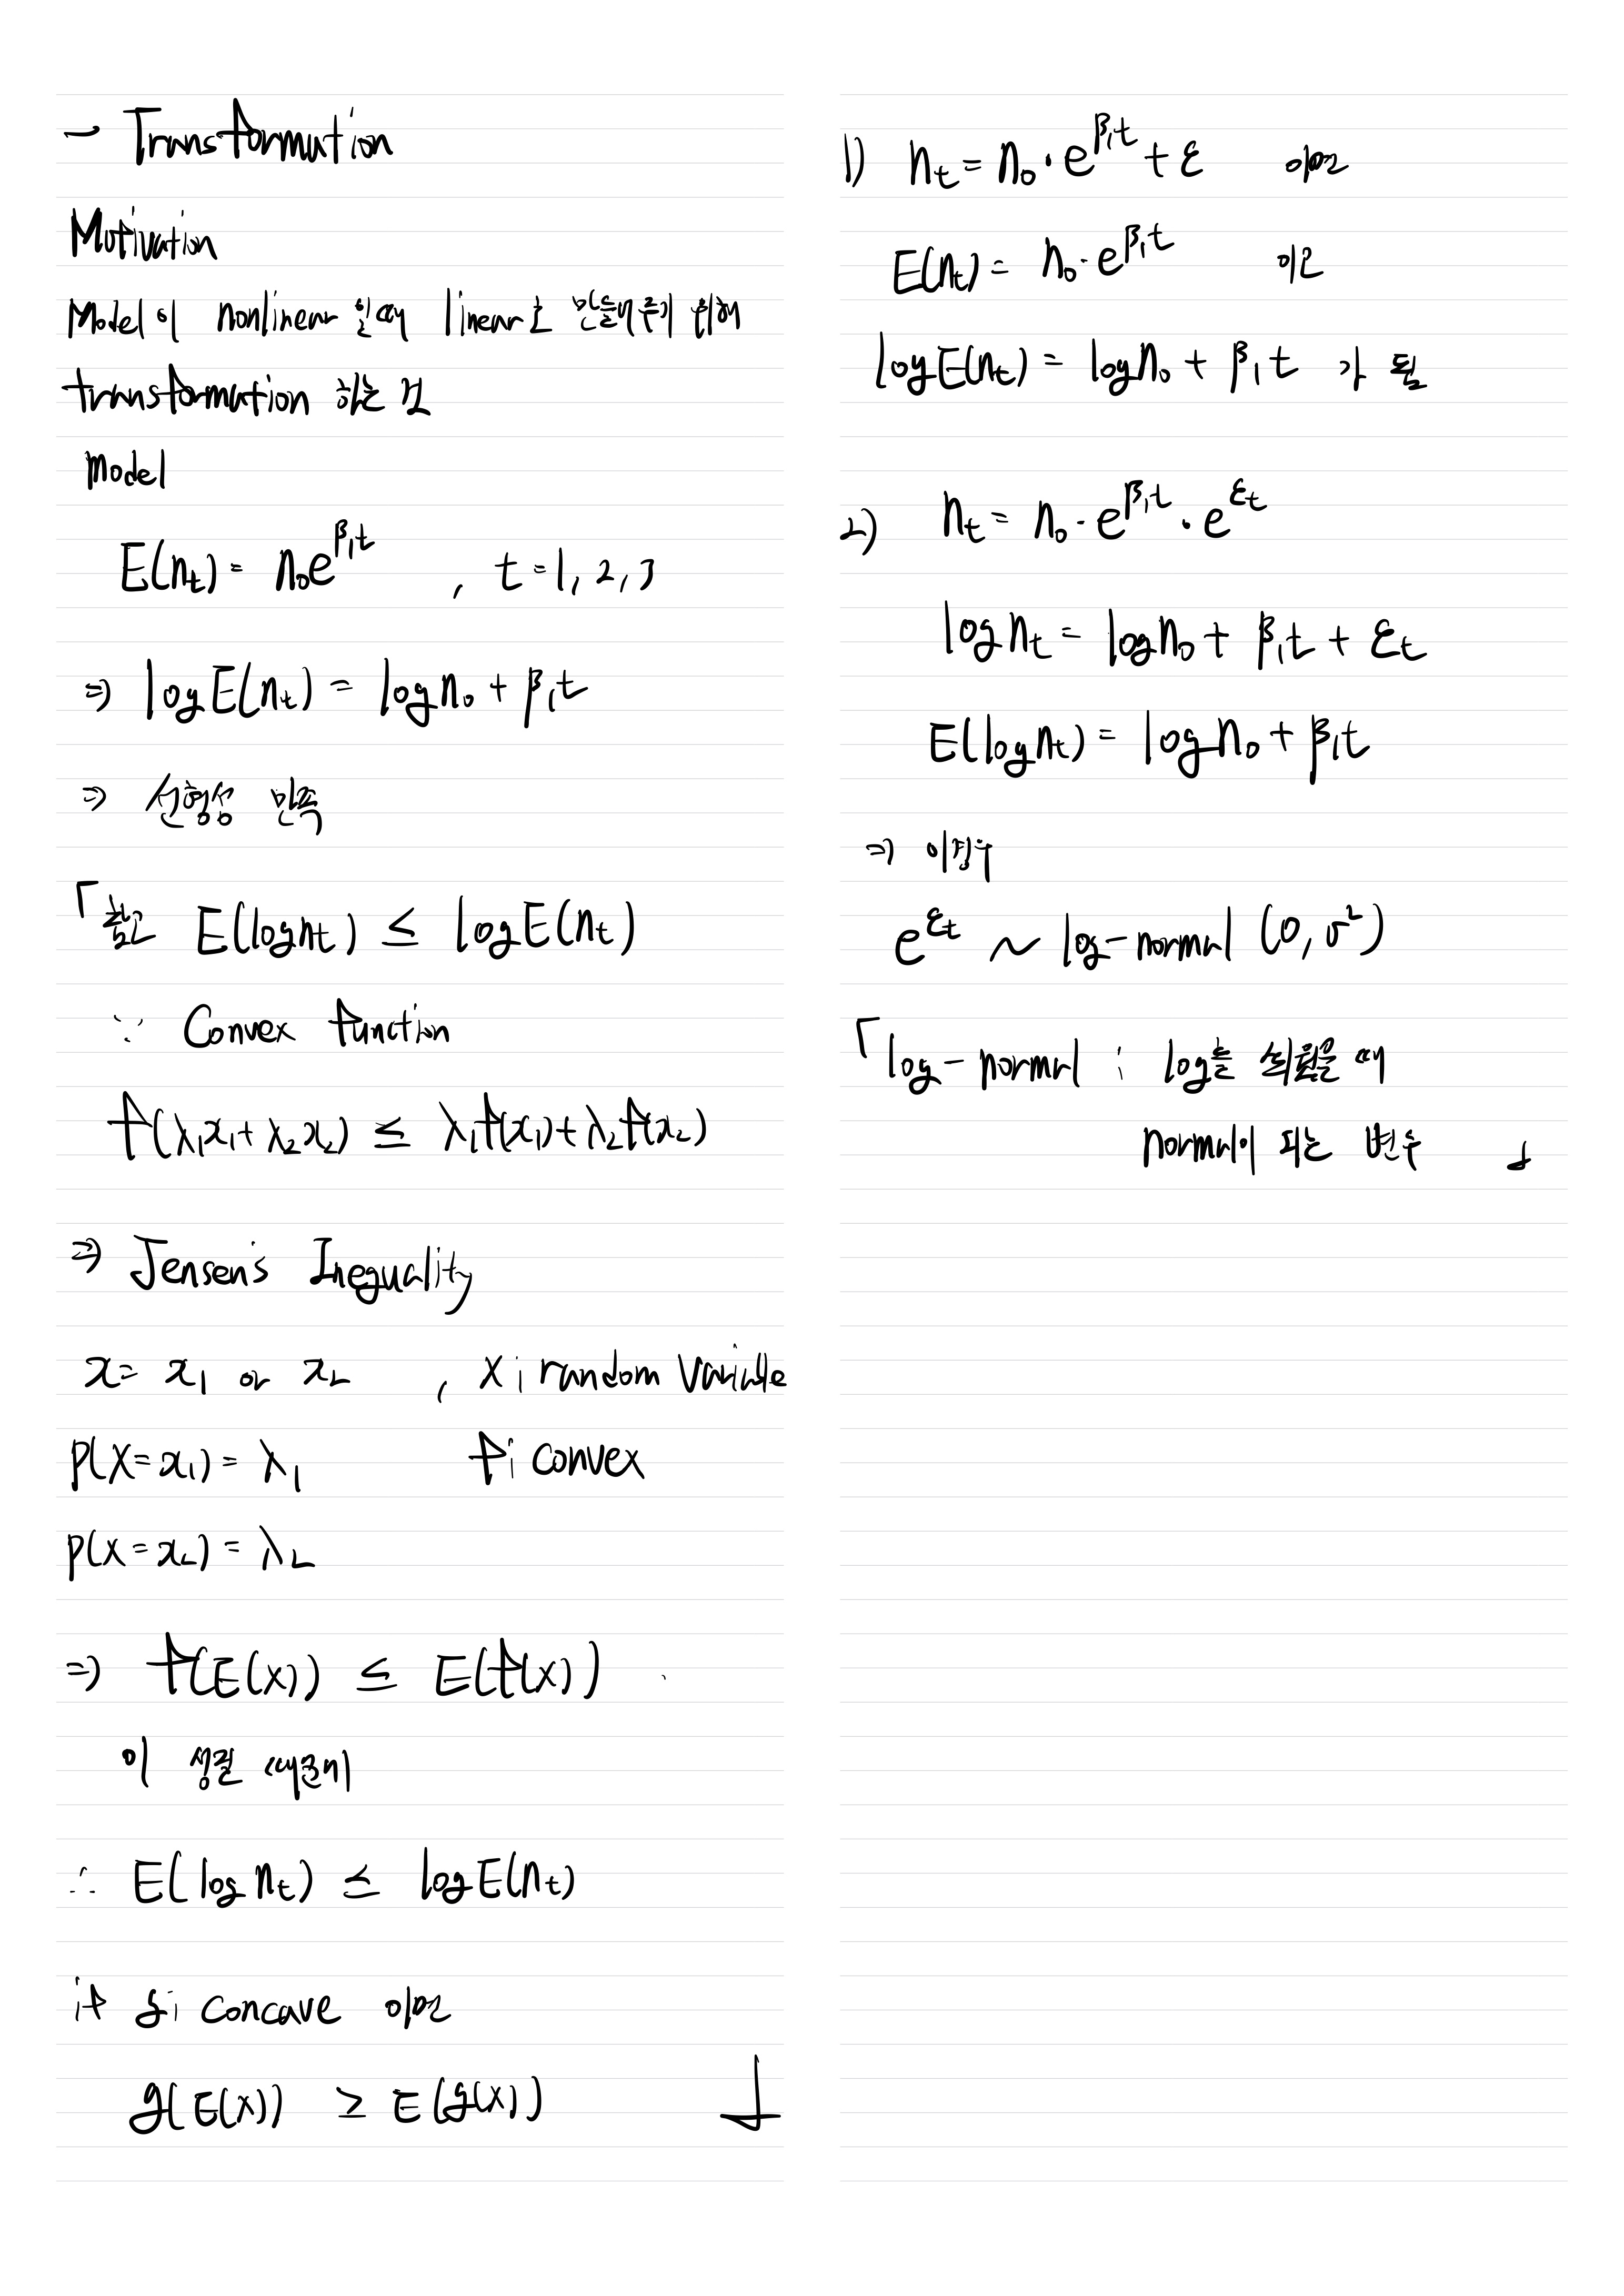 - Transformation
Motivation
Model이 nonlinear일때 linear로 만들어주기 위해
transformation 하는 것
model
E(nₜ) = n₀e^{β₁t} , t = 1, 2, 3
⇒ log E(nₜ) = log n₀ + β₁t
⇒ 선형성 만족
「참고 E(log nₜ) ≤ log E(nₜ)
∵ Convex function
f(λ₁x₁ + λ₂x₂) ≤ λ₁f(x₁) + λ₂f(x₂)
⇒ Jensen's Inequality
x = x₁ or x₂ , X ; random variable
P(X = x₁) = λ₁ f ; convex
P(X = x₂) = λ₂
⇒ f(E(X)) ≤ E(f(X))
이 성질 때문에
∴ E(log nₜ) ≤ log E(nₜ)
if g ; concave 이면
g(E(X)) ≥ E(g(X)) 」
1) nₜ = n₀ · e^{β₁t} + ε 이면
E(nₜ) = n₀ · e^{β₁t} 이고
log E(nₜ) = log n₀ + β₁t 가 됨
2) nₜ = n₀ · e^{β₁t} · e^{εₜ}
log nₜ = log n₀ + β₁t + εₜ
E(log nₜ) = log n₀ + β₁t
⇒ 이경우
e^{εₜ} ~ log-normal (0, σ²)
「log-normal ; log를 씌웠을 때
normal이 되는 변수 」